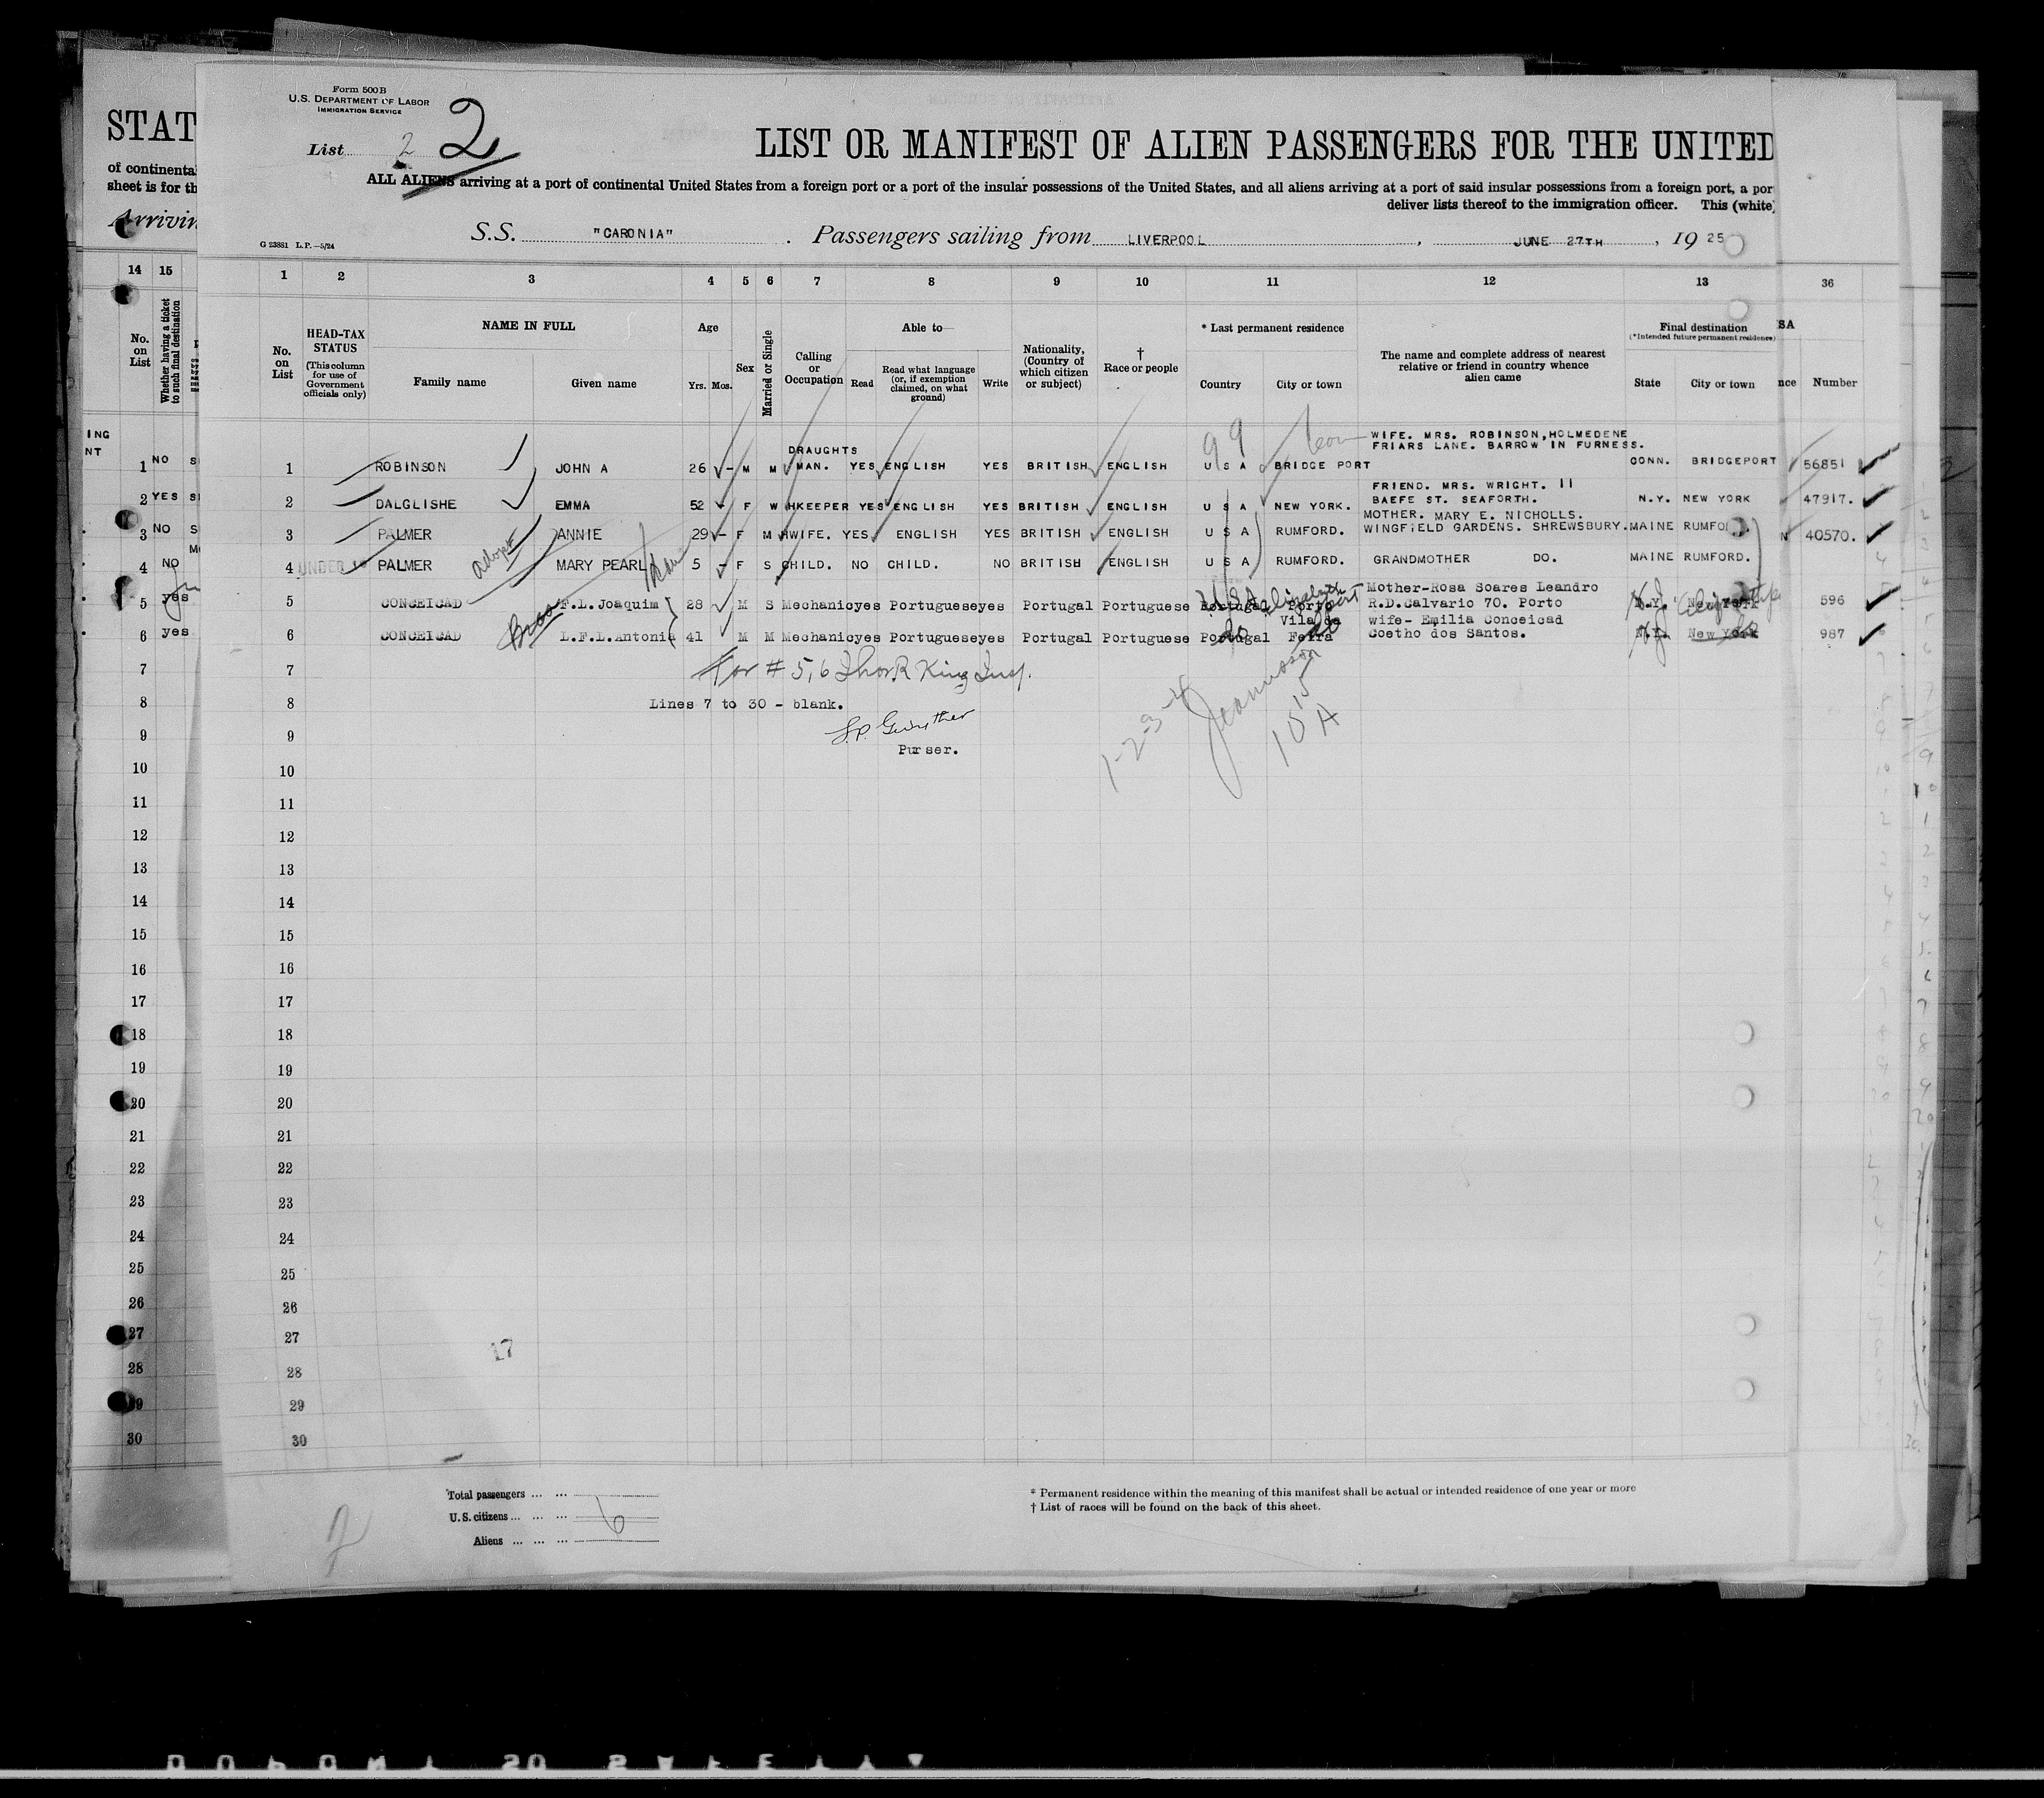 Form 500B
U.S. DEPARTMENT OF LABOR
IMMIGRATION SERVICE
List 2 2
STAT
LIST OR MANIFEST OF ALIEN PASSENGERS FOR THE UNITED
of continental
sheet is for th
ALL ALIENS arriving at a port of continental United States from a foreign port or a port of the insular possessions of the United States, and all aliens arriving at a port of said insular possessions from a foreign port, a por
deliver lists thereof to the immigration officer. This (white)
Arrivin
G 23881 L.P.—5/24
S.S. "CARONIA". Passengers sailing from LIVERPOOL, JUNE 27TH, 1925
14 15 1 2 3 4 5 6 7 8 9 10 11 12 13 36
No. on List
Whether having a ticket to such final destination
No. on List
HEAD-TAX STATUS
(This column for use of Government officials only)
NAME IN FULL
Family name
Given name
Age
Yrs. Mos.
Sex
Married or Single
Calling or Occupation
Able to
Read
Read what language (or, if exemption claimed, on what ground)
Write
Nationality, (Country of which citizen or subject)
† Race or people
* Last permanent residence
Country
City or town
The name and complete address of nearest relative or friend in country whence alien came
Final destination
(*Intended future permanent residence)
State
City or town
SA
nce
Number
ING
NT
99
WIFE. MRS. ROBINSON, HOLMEDENE
DRAUGHTS
FRIARS LANE. BARROW IN FURNESS.
1 NO S 1 ROBINSON JOHN A 26 - M M MAN. YES ENGLISH YES BRITISH ENGLISH U S A BRIDGE PORT CONN. BRIDGEPORT 56851
FRIEND. MRS. WRIGHT. 11
2 YES 2 DALGLISHE EMMA 52 - F W HKEEPER YES ENGLISH YES BRITISH ENGLISH U S A NEW YORK. BAEFE ST. SEAFORTH. N.Y. NEW YORK 47917.
MOTHER. MARY E. NICHOLLS.
3 NO S 3 PALMER ANNIE 29 - F M HWIFE. YES ENGLISH YES BRITISH ENGLISH U S A RUMFORD. WINGFIELD GARDENS. SHREWSBURY. MAINE RUMFO N 40570.
4 NO 4 UNDER 16 PALMER adopt MARY PEARL 5 - F S CHILD. NO CHILD. NO BRITISH ENGLISH U S A RUMFORD. GRANDMOTHER DO. MAINE RUMFORD.
Mother-Rosa Soares Leandro
5 yes 5 CONCEICAD F.L.Joaquim 28 M S Mechanic yes Portuguese yes Portugal Portuguese Portugal Porto USA Elizabeth port R.D.Calvario 70. Porto N.Y. New York 596
Vila da wife- Emilia Conceicad
6 yes 6 CONCEICAD Bros L.F.L.Antonia 41 M M Mechanic yes Portuguese yes Portugal Portuguese Portugal Feira do do Coetho dos Santos. N.Y. New York do 987
7 7 For # 5,6 Thos R King Insp.
8 8 Lines 7 to 30 - blank.
9 9
Purser.
1-2-3-4
10 15 A
10 10
11 11
12 12
13 13
14 14
15 15
16 16
17 17
18 18
19 19
20 20
21 21
22 22
23 23
24 24
25 25
26 26
27 27
17
28 28
29 29
30 30
Total passengers ... ...
U.S. citizens ... ... ... 6
Aliens ... ... ...
* Permanent residence within the meaning of this manifest shall be actual or intended residence of one year or more
† List of races will be found on the back of this sheet.
2